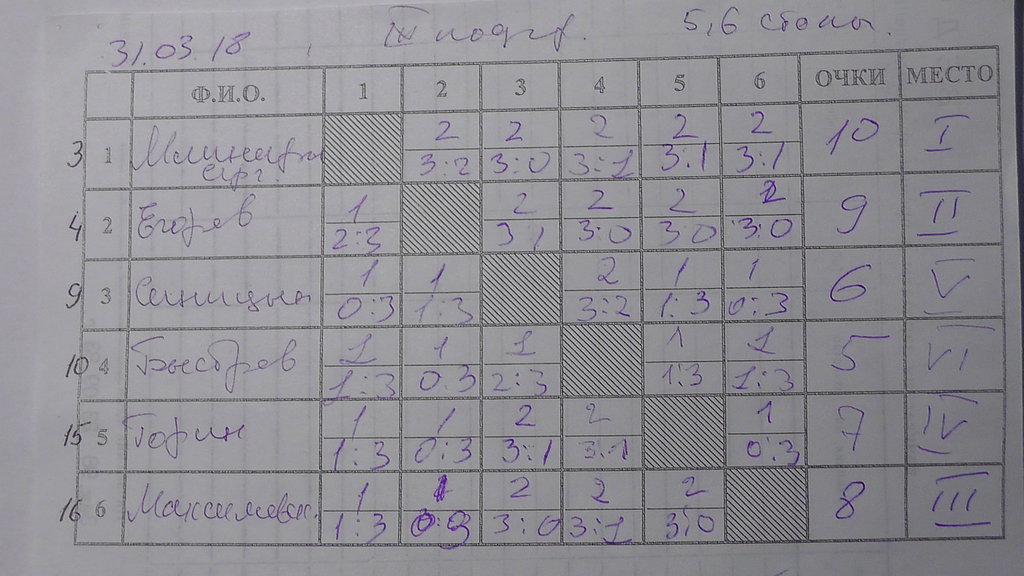 31.03.18 IV подгр. 5,6 столы.
Ф.И.О. 1 2 3 4 5 6 ОЧКИ МЕСТО
3 1 2 2 2 2 2 10 I
3:2 3:0 3:1 3:1 3:1
4 2 Егоров 1 2 2 2 2 9 II
2:3 3 1 3:0 3 0 3:0
9 3 Синицын 1 1 2 1 1 6 V
0:3 1:3 3:2 1:3 0:3
10 4 Быстров 1 1 1 1 1 5 VI
1:3 0:3 2:3 1:3 1:3
15 5 Горин 1 1 2 2 1 7 IV
1:3 0:3 3:1 3:1 0:3
16 6 1 1 2 2 2 8 III
1:3 0:3 3:0 3:1 3:0